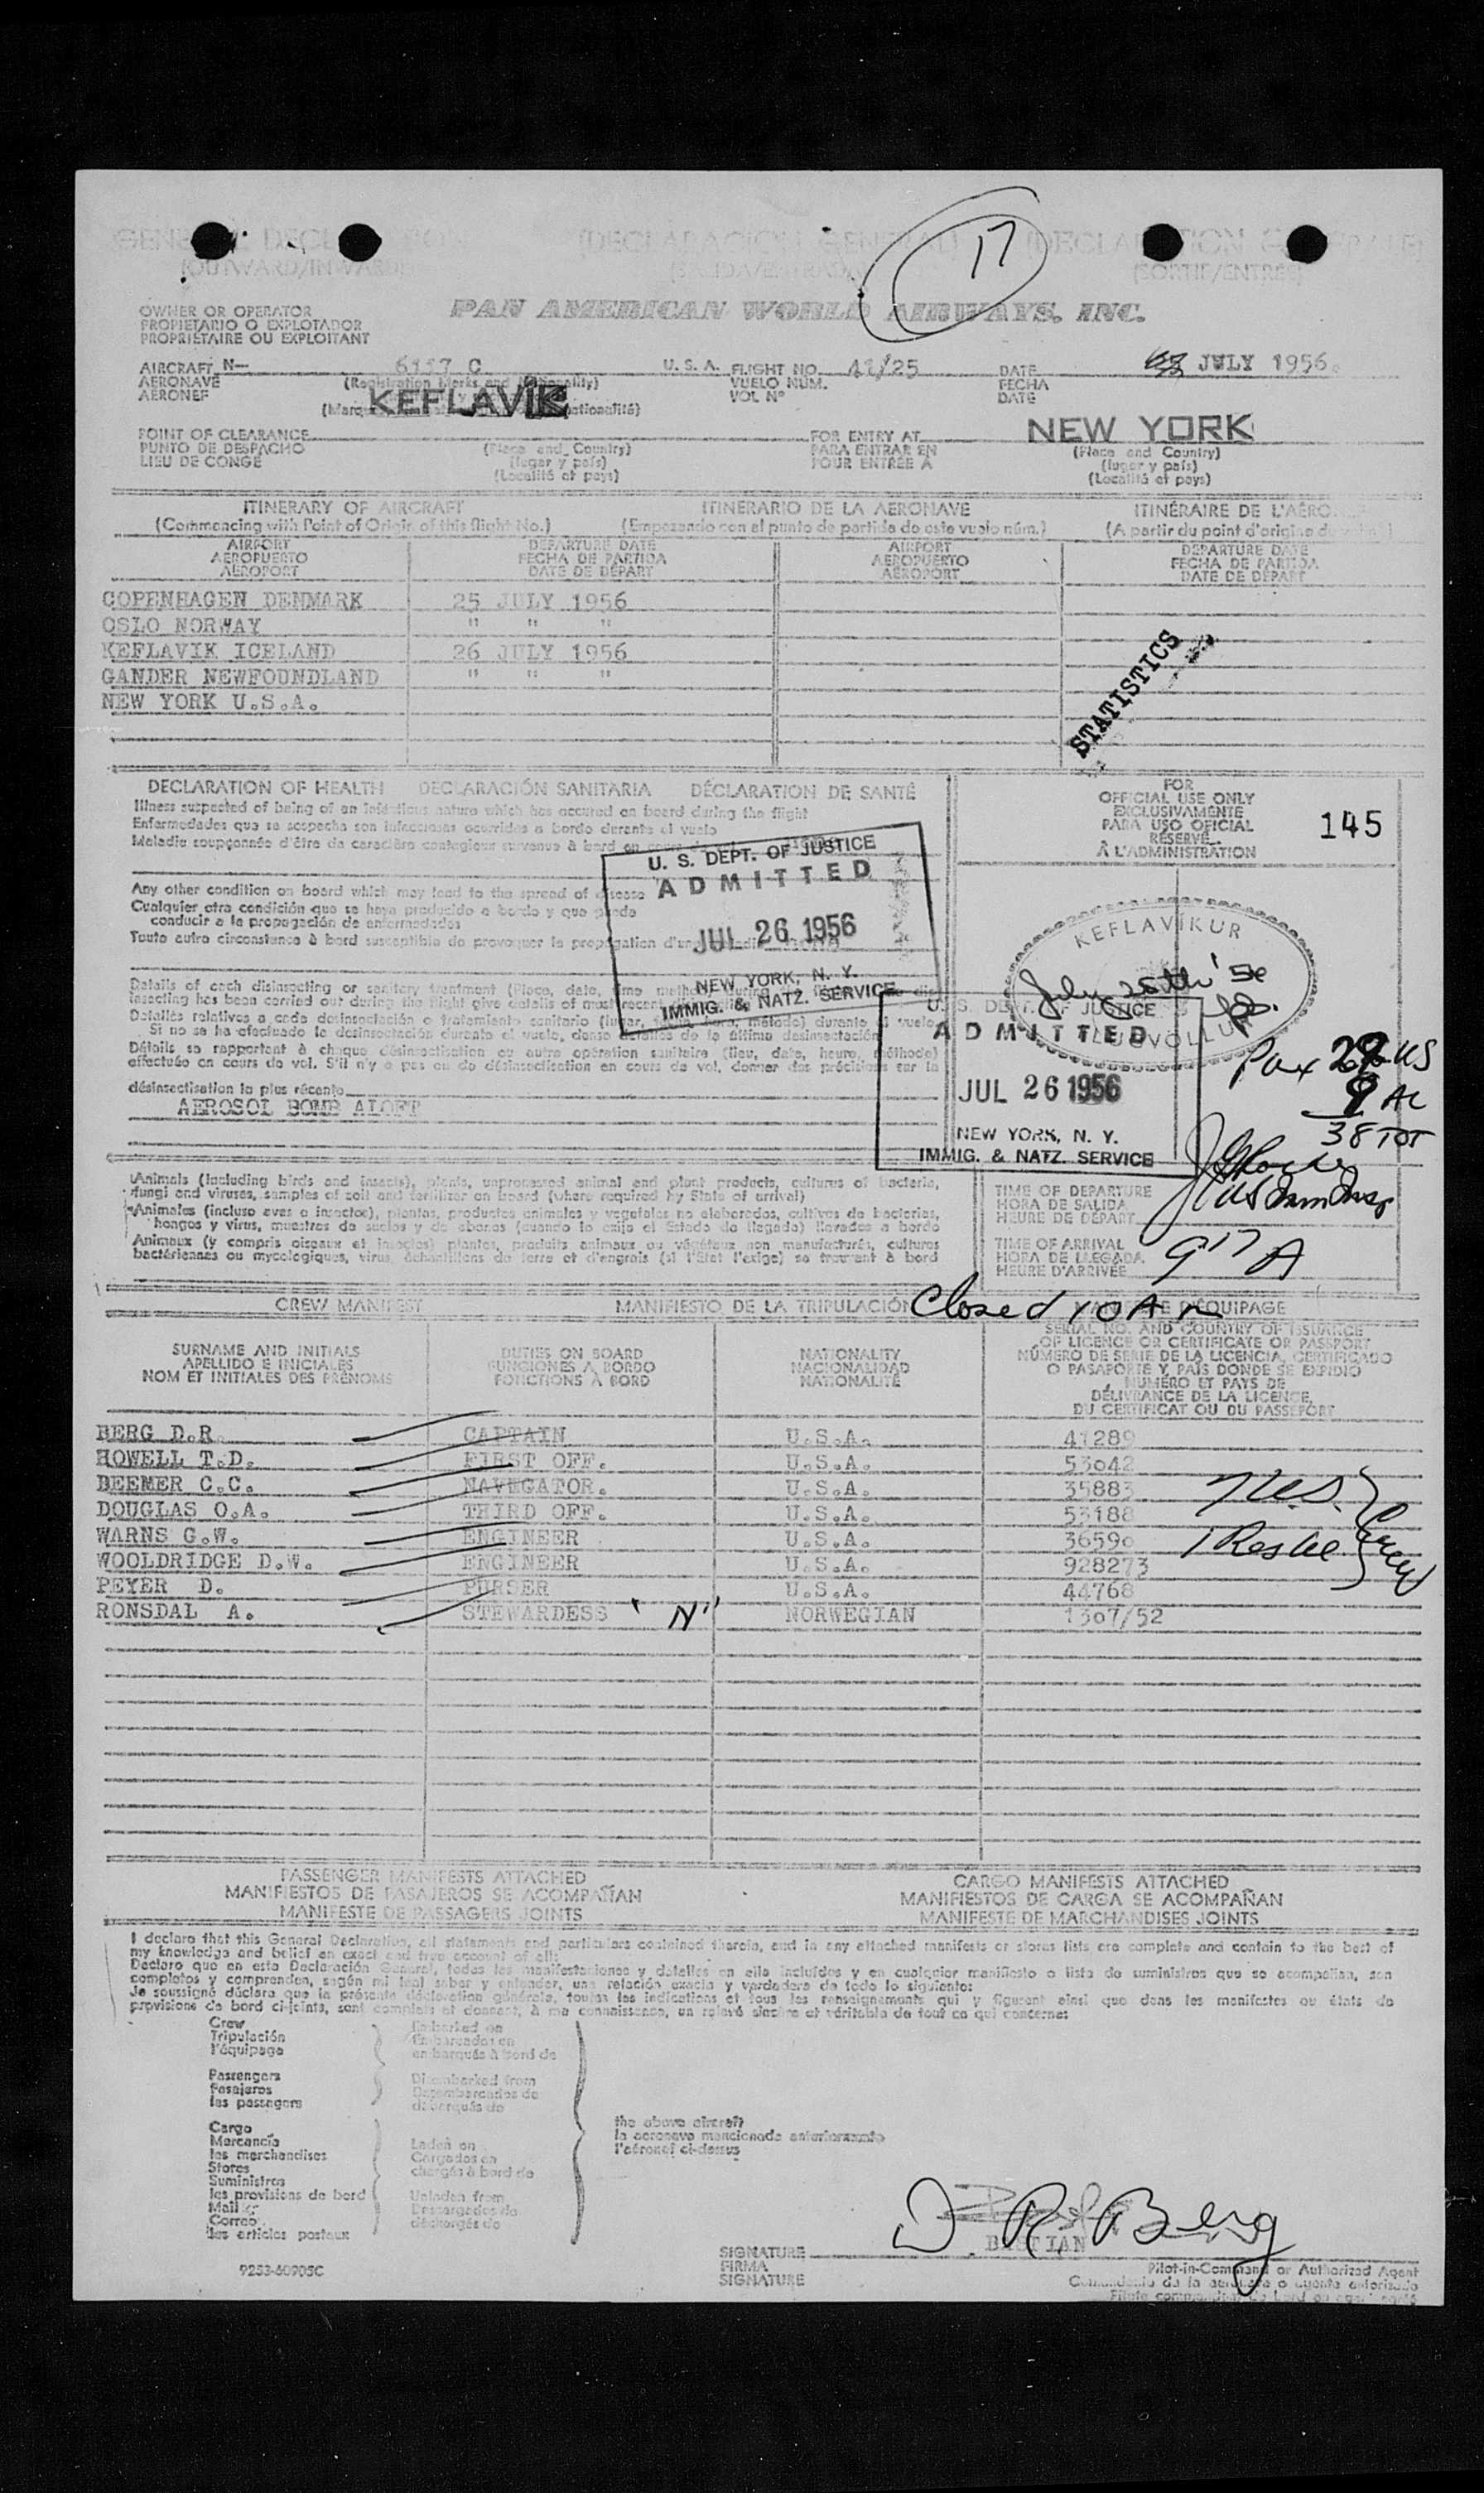 GENERAL DECLARATION (DECLARACION GENERAL) (DECLARATION GENERALE)
(OUTWARD/INWARD) (SALIDA/ENTRADA) (SORTIE/ENTRÉE)
17
OWNER OR OPERATOR
PROPIETARIO O EXPLOTADOR
PROPRIÉTAIRE OU EXPLOITANT
PAN AMERICAN WORLD AIRWAYS, INC.
AIRCRAFT N— C U.S.A. FLIGHT NO. /25 DATE JULY 1956
AERONAVE (Registration Marks and Nationality) VUELO NÚM. FECHA
AÉRONEF VOL Nº DATE
KEFLAVIK
NEW YORK
POINT OF CLEARANCE (Place and Country) FOR ENTRY AT (Place and Country)
PUNTO DE DESPACHO (lugar y país) PARA ENTRAR EN (lugar y país)
LIEU DE CONGÉ (Localité et pays) POUR ENTRÉE À (Localité et pays)
ITINERARY OF AIRCRAFT ITINERARIO DE LA AERONAVE ITINÉRAIRE DE L'AÉRO
(Commencing with Point of Origin of this flight No.) (Empezando con el punto de partida de este vuelo núm.) (A partir du point d'origine du
AIRPORT DEPARTURE DATE AIRPORT DEPARTURE DATE
AEROPUERTO FECHA DE PARTIDA AEROPUERTO FECHA DE PARTIDA
AÉROPORT DATE DE DÉPART AÉROPORT DATE DE DÉPART
COPENHAGEN DENMARK 25 JULY 1956
OSLO NORWAY " " "
KEFLAVIK ICELAND 26 JULY 1956
GANDER NEWFOUNDLAND " " "
NEW YORK U.S.A.
STATISTICS
DECLARATION OF HEALTH DECLARACIÓN SANITARIA DÉCLARATION DE SANTÉ
Illness suspected of being of an infectious nature which has occured on board during the flight
Enfermedades que se sospecha son infecciosas ocurridas a bordo durante el vuelo
Maladie soupçonnée d'être de caractère contagieux survenue à bord en cours de vol
FOR
OFFICIAL USE ONLY
EXCLUSIVAMENTE
PARA USO OFICIAL
RÉSERVÉ
À L'ADMINISTRATION
145
U. S. DEPT. OF JUSTICE
ADMITTED
JUL 26 1956
NEW YORK, N. Y.
IMMIG. & NATZ. SERVICE
Any other condition on board which may lead to the spread of disease
Cualquier otra condición que se haya producido a bordo y que puede
conducir a la propagación de enfermedades
Toute autre circonstance à bord susceptible de provoquer la propagation d'une maladie
KEFLAVÍKUR
FLUGVÖLLUR
Details of each disinsecting or sanitary treatment (Place, date, time method) during the flight
insecting has been carried out during the flight give details of most recent
Detalles relativos a cada desinsectación o tratamiento sanitario (lugar, fecha, hora, método) durante el vuelo
Si no se ha efectuado la desinsectación durante el vuelo, dense detalles de la última desinsectación
Détails se rapportant à chaque désinsectisation ou autre opération sanitaire (lieu, date, heure, méthode)
effectuée en cours de vol. S'il n'y a pas eu de désinsectisation en cours de vol, donner des précisions sur la
désinsectisation la plus récente
AEROSOL BOMB ALOFT
U. S. DEPT. OF JUSTICE
ADMITTED
JUL 26 1956
NEW YORK, N. Y.
IMMIG. & NATZ. SERVICE
Pax 29 US
9 AL
38 TOT
Animals (including birds and insects), plants, unprocessed animal and plant products, cultures of bacteria,
fungi and viruses, samples of soil and fertilizer on board (where required by State of arrival)
Animales (incluso aves o insectos), plantas, productos animales y vegetales no elaborados, cultivos de bacterias,
hongos y virus, muestras de suelos y de abonos (cuando lo exija el Estado de llegada) llevados a bordo
Animaux (y compris oiseaux et insectes) plantes, produits animaux ou végétaux non manufacturés, cultures
bactériennes ou mycologiques, virus, échantillons de terre et d'engrais (si l'État l'exige) se trouvant à bord
TIME OF DEPARTURE
HORA DE SALIDA
HEURE DE DÉPART
TIME OF ARRIVAL
HORA DE LLEGADA
HEURE D'ARRIVÉE
9 17 A
Closed 10 A
CREW MANIFEST MANIFIESTO DE LA TRIPULACIÓN D'ÉQUIPAGE
SURNAME AND INITIALS DUTIES ON BOARD NATIONALITY
APELLIDO E INICIALES FUNCIONES A BORDO NACIONALIDAD
NOM ET INITIALES DES PRÉNOMS FONCTIONS À BORD NATIONALITÉ
SERIAL NO. AND COUNTRY OF ISSUANCE
OF LICENCE OR CERTIFICATE OR PASSPORT
NÚMERO DE SERIE DE LA LICENCIA, CERTIFICADO
O PASAPORTE Y PAÍS DONDE SE EXPIDIÓ
NUMÉRO ET PAYS DE
DÉLIVRANCE DE LA LICENCE,
DU CERTIFICAT OU DU PASSEPORT
BERG D.R. CAPTAIN U.S.A. 41289
HOWELL T.D. FIRST OFF. U.S.A. 53042
BEEMER C.C. NAVIGATOR. U.S.A. 35883
DOUGLAS O.A. THIRD OFF. U.S.A. 53188
WARNS G.W. ENGINEER U.S.A. 36590
WOOLDRIDGE D.W. ENGINEER U.S.A. 928273
PEYER D. PURSER U.S.A. 44768
RONSDAL A. STEWARDESS "N" NORWEGIAN 1307/52
7 U.S.
1
Crew
PASSENGER MANIFESTS ATTACHED CARGO MANIFESTS ATTACHED
MANIFIESTOS DE PASAJEROS SE ACOMPAÑAN MANIFIESTOS DE CARGA SE ACOMPAÑAN
MANIFESTE DE PASSAGERS JOINTS MANIFESTE DE MARCHANDISES JOINTS
I declare that this General Declaration, all statements and particulars contained therein, and in any attached manifests or stores lists are complete and contain to the best of
my knowledge and belief an exact and true account of all:
Declaro que en esta Declaración General, todas las manifestaciones y detalles en ella incluídos y en cualquier manifiesto o lista de suministros que se acompañan, son
completos y comprenden, según mi leal saber y entender, una relación exacta y verdadera de todo lo siguiente:
Je soussigné déclare que la présente déclaration générale, toutes les indications et tous les renseignements qui y figurent ainsi que dans les manifestes ou états de
provisions de bord ci-joints, sont complets et donnent, à ma connaissance, un relevé sincère et véritable de tout ce qui concerne:
Crew Embarked on
Tripulación Embarcados en
l'équipage embarqués à bord de
Passengers Disembarked from
Pasajeros Desembarcados de
les passagers débarqués de
the above aircraft
la aeronave mencionada anteriormente
l'aéronef ci-dessus
Cargo
Mercancía Laden on
les marchandises Cargados en
Stores chargés à bord de
Suministros
les provisions de bord Unladen from
Mail Descargados de
Correo déchargés de
les articles postaux
D R Berg
BASTIAN
SIGNATURE
FIRMA
SIGNATURE
Pilot-in-Command or Authorized Agent
Comandante de la aeronave o agente autorizado
9253-60905C